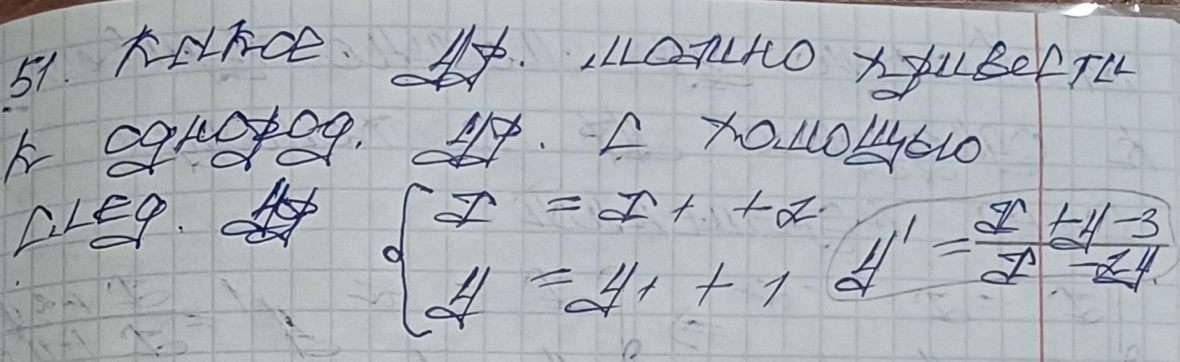 51. Какое ДУ. можно привести
к однород. ДУ. с помощью
след. ДУ { x = x₁ + 2 y' = (x + y - 3)/(x - 2y)
y = y₁ + 1